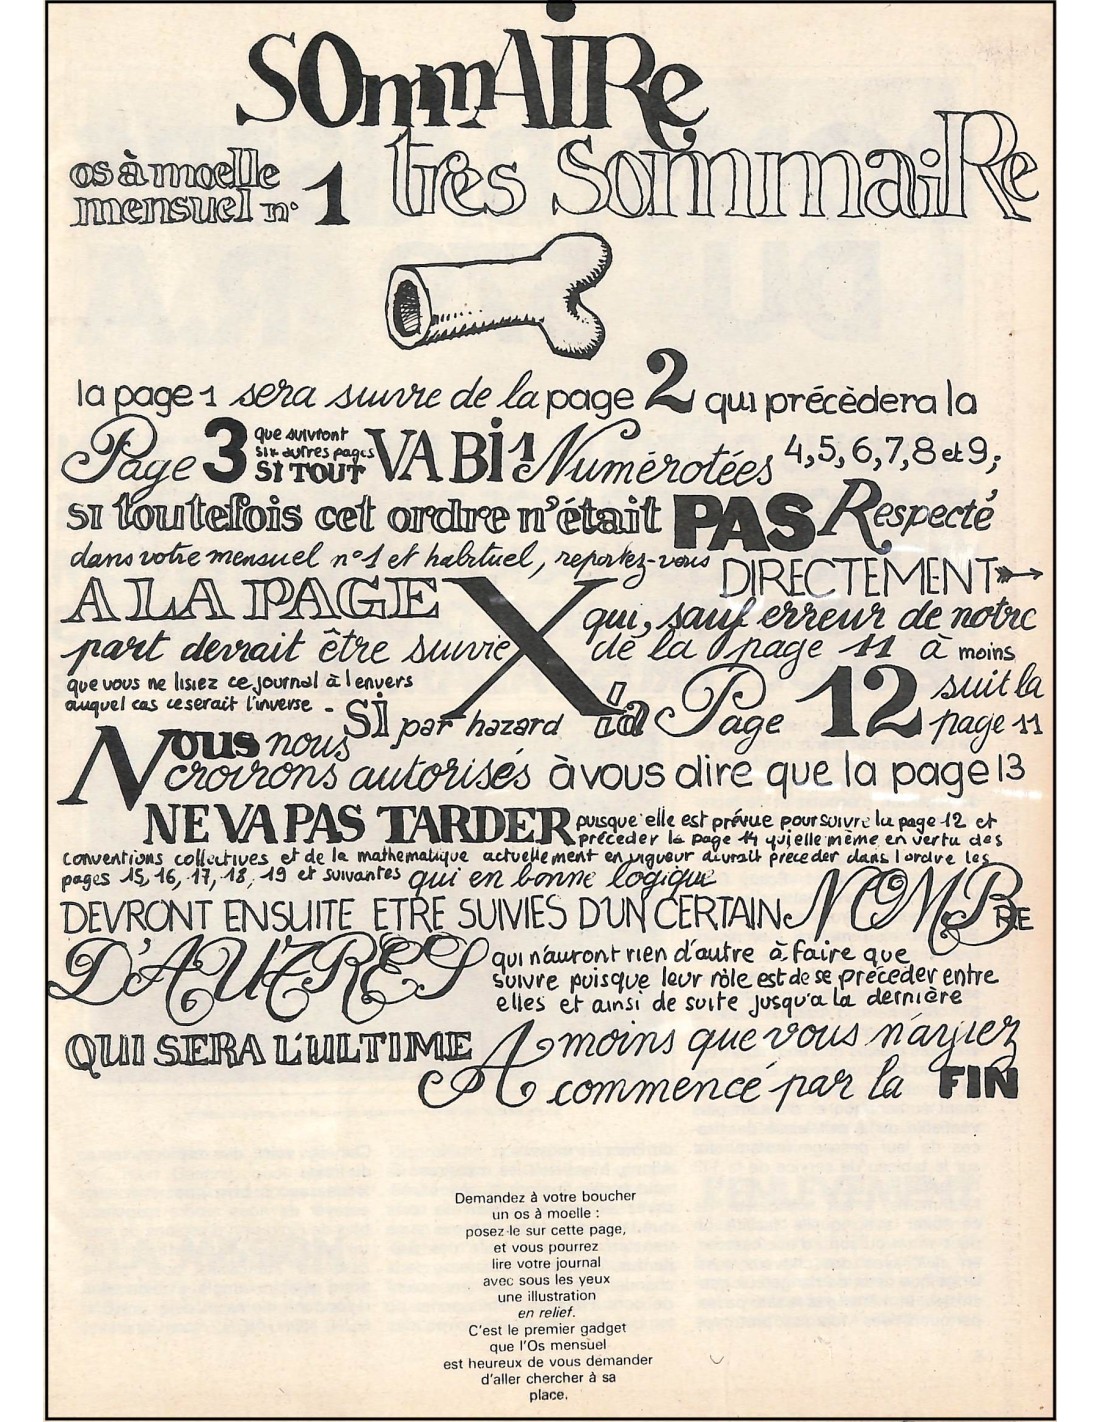 SOmmAiRe
très SommaiRe
os à moelle
mensuel n° 1
la page 1 sera suivie de la page 2 qui précèdera la
Page 3 que suivront
six autres pages
SI TOUT VA BiN Numérotées 4,5,6,7,8 et 9;
si toutefois cet ordre n'était PAS Respecté
dans votre mensuel n°1 et habituel, reportez-vous DIRECTEMENT
A LA PAGE X qui, sauf erreur de notre
part devrait être suivie de la page 11 à moins
que vous ne lisiez ce journal à l'envers
auquel cas ce serait l'inverse - Si par hazard la Page 12 suit la
page 11
Nous nous
croirons autorisés à vous dire que la page 13
NE VA PAS TARDER puisque elle est prévue pour suivre la page 12 et
préceder la page 14 qui elle même en vertu des
conventions collectives et de la mathematique actuellement en vigueur devrait preceder dans l'ordre les
pages 15, 16, 17, 18, 19 et suivantes qui en bonne logique
DEVRONT ENSUITE ETRE SUIVIES D'UN CERTAIN NOMBRE
D'AUTRES qui n'auront rien d'autre à faire que
suivre puisque leur rôle est de se préceder entre
elles et ainsi de suite jusqu'a la dernière
QUI SERA L'ULTIME A moins que vous n'ayiez
commencé par la FIN
Demandez à votre boucher
un os à moelle :
posez-le sur cette page,
et vous pourrez
lire votre journal
avec sous les yeux
une illustration
en relief.
C'est le premier gadget
que l'Os mensuel
est heureux de vous demander
d'aller chercher à sa
place.